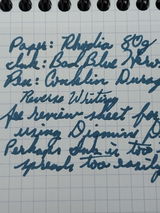 Paper: Rhodia 80g
Ink: Bad Blue
Pen: Conklin Durag
Reverse Writing
review sheet for
using Diamin
Perhaps Ink is too
spreads too easily